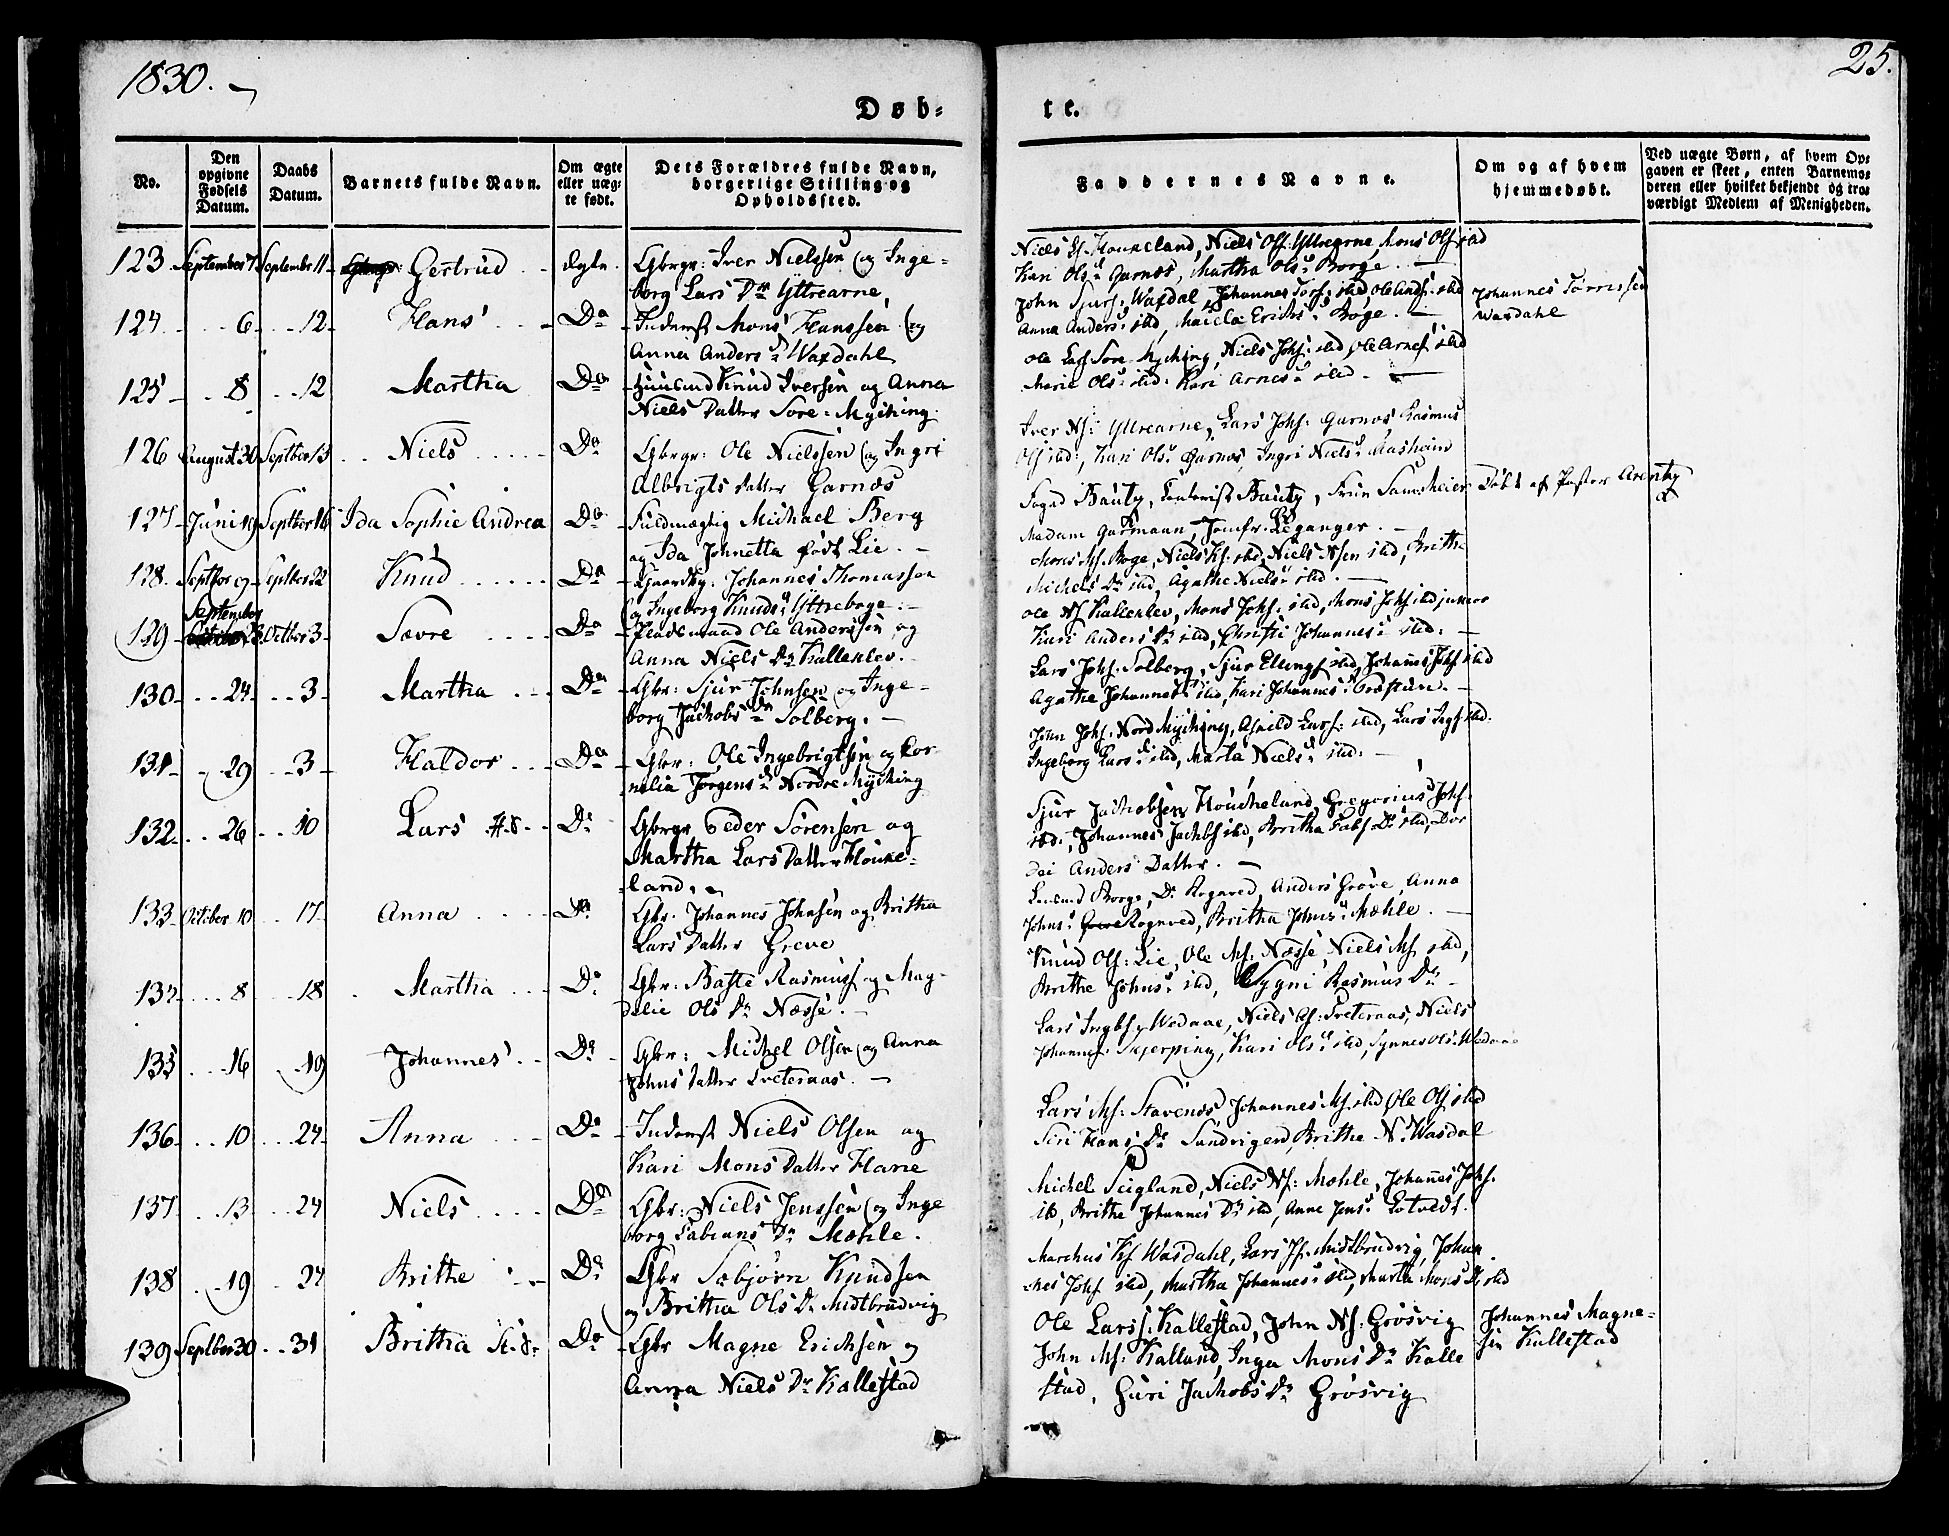 1830.
25.
Døb-
te.
No.
Den opgivne Fødsels Datum.
Daabs Datum.
Barnets fulde Navn.
Om ægte eller uæg- te født.
Dets Forældres fulde Navn, borgerlige Stilling og Opholdssted.
Faddernes Navne.
Om og af hvem hjemmedøbt.
Ved uægte Børn, af hvem Op- gaven er skeet, enten Barnemo- deren eller hvilket bekjendt og tro- værdigt Medlem af Menigheden.
123 September 7 September 11 Gertrud Ægte Gbrgr: Iver Nielssen og Inge-
borg Lars Dr Yttrearne,
Houkeland, Niels Ols: Yttrearne, Mons Ols: istd
Kari Ols D Garnæs, Martha Ols D Borge.
124 6 12 Hans Do Inderst Mons Hanssen og
Anna Anders D Waxdahl
John Sjurs: Waxdal, Johannes Torf: istd, Ole And: istd
Anna Anders D istd, Erichs D Boge.
Johannes Torrissen
Wasdahl
125 8 12 Martha Do Huusmd Knud Iversen og Anna
Niels Datter Sore-Myching.
Ole Lars: Sore Myching, Niels Johs: istd, Ole Arnes: istd
Marie Ols D istd, Kari Arnes D istd.
126 August 30 Septber 13 Niels Do Gbrgr: Ole Nielssen og Ingri
Albrigts Datter Garnæs
Iver Ns: Yttrearne, Lars Johs: Garnæs, Rasmus
Ols: istd, Kari Ols D Garnæs, Ingri Niels D Aasheim
127 Juni 19 Septber 16 Ida Sophie Andrea Do Fuldmægtig Michael Berg
og Ida Johnetta født Lie.
Foged Bauty, Bauty, Frue Samsheier
Madam Garmann, Jomfr: Leganger.
Døbt af Pastor
128. Septbr 9 Septbr 22 Knud Do Gaardbr: Johannes Thomassen
og Ingeborg Knuds D Yttreboge.
Mons Ms: Boge, Niels Ks: istd, Niels Nsen istd, Britha
Michels Dr istd, Agathe Niels D istd.
129 September 23 Octber 3 Sævre Do Pladsmand Ole Anderssen og
Anna Niels Dr Kalleklev.
Ole Ns Kalleklev, Mons Johs: istd, Mons Johs istd junior
Kari Anders Dr istd, Christi Johannes D istd.
130 24 3 Martha Do Gbr: Sjur Johnsen og Inge-
borg Jachobs Dr Solberg.
Lars Johs: Solberg, Sjur Ellings: istd, Johannes Johs istd
Agathe Johannes D istd, Kari Johannes D
131 29 3 Haldor Do Gbr: Ole Ingebrigtsen og Cor-
nelia Jørgens D Nordre Myching
John Johs: Nord Myching, Lars: istd, Lars istd.
Ingeborg Lars D istd, Marta Niels D istd.
132 26 10 Lars H.d. Do Gbrgr Peder Sørensen og
Martha Lars Datter Houke-
land.
Sjur Jachobsen Houcheland, Gregorius Johs:
istd, Johannes Jachbs istd, Britha Fabs Dr istd, Dor
dei Anders Datter.
133 October 10 17 Anna Do Gbr. Johannes Johnsen og Britha
Lars Datter Greve
Borge, Dr Rognved, Anders Grove, Anna
Johns D Rognved, Britha Johns D Mæhle.
134 8 18 Martha Do Gbr: Baste Rasmuss: og Mag-
delie Ols Dr Næsse.
Knud Ols: Lie, Ole Ms: Næsse, Niels Ms: istd,
Brithe Johns D istd, Sygni Rasmus Dr
135 16 19 Johannes Do Gbr: Michel Olsen og Anna
Johns Datter Treteraas.
Lars Ingbs: Wedaae, Niels Treteraas, Niels
Johannes: Skjerping, Kari Ols D istd, Synnes Ols D
136 10 24 Anna Do Inderst Niels Olsen og
Kari Mons Datter Hane
Lars Ms: Stavenæs, Johannes Ms: istd, Ole Ols istd
Siri Hans Dr Brithe N D Wasdal
137 13 24 Niels Do Gbr: Niels Jenssen og Inge
borg Fabians Dr Mæhle.
Michel Seigland, Niels Ns: Mohle, Johannes Johs.
istd, Brithe Johannes Dr istd, Anne Jens D
138 19 24 Brithe Do Gbr Sæbjørn Knudsen
og Britha Ols Dr Midtbrudvig
Marchus Ks Wasdahl, Lars Midtbrudvig, Johan
nes Johs istd, Martha Johannes D istd, Marta Mons D istd
139 Septber 30 31 Britha St. d. Do Gbr Magne Erichsen og
Anna Niels Dr Kallestad
Ole Larss: Kallestad, John Ns: Grosvig
John Ms: Kalland, Inga Mons Dr Kalle
stad, Guri Jachobs Dr Grosvig
Johannes Magne-
sen Kallestad